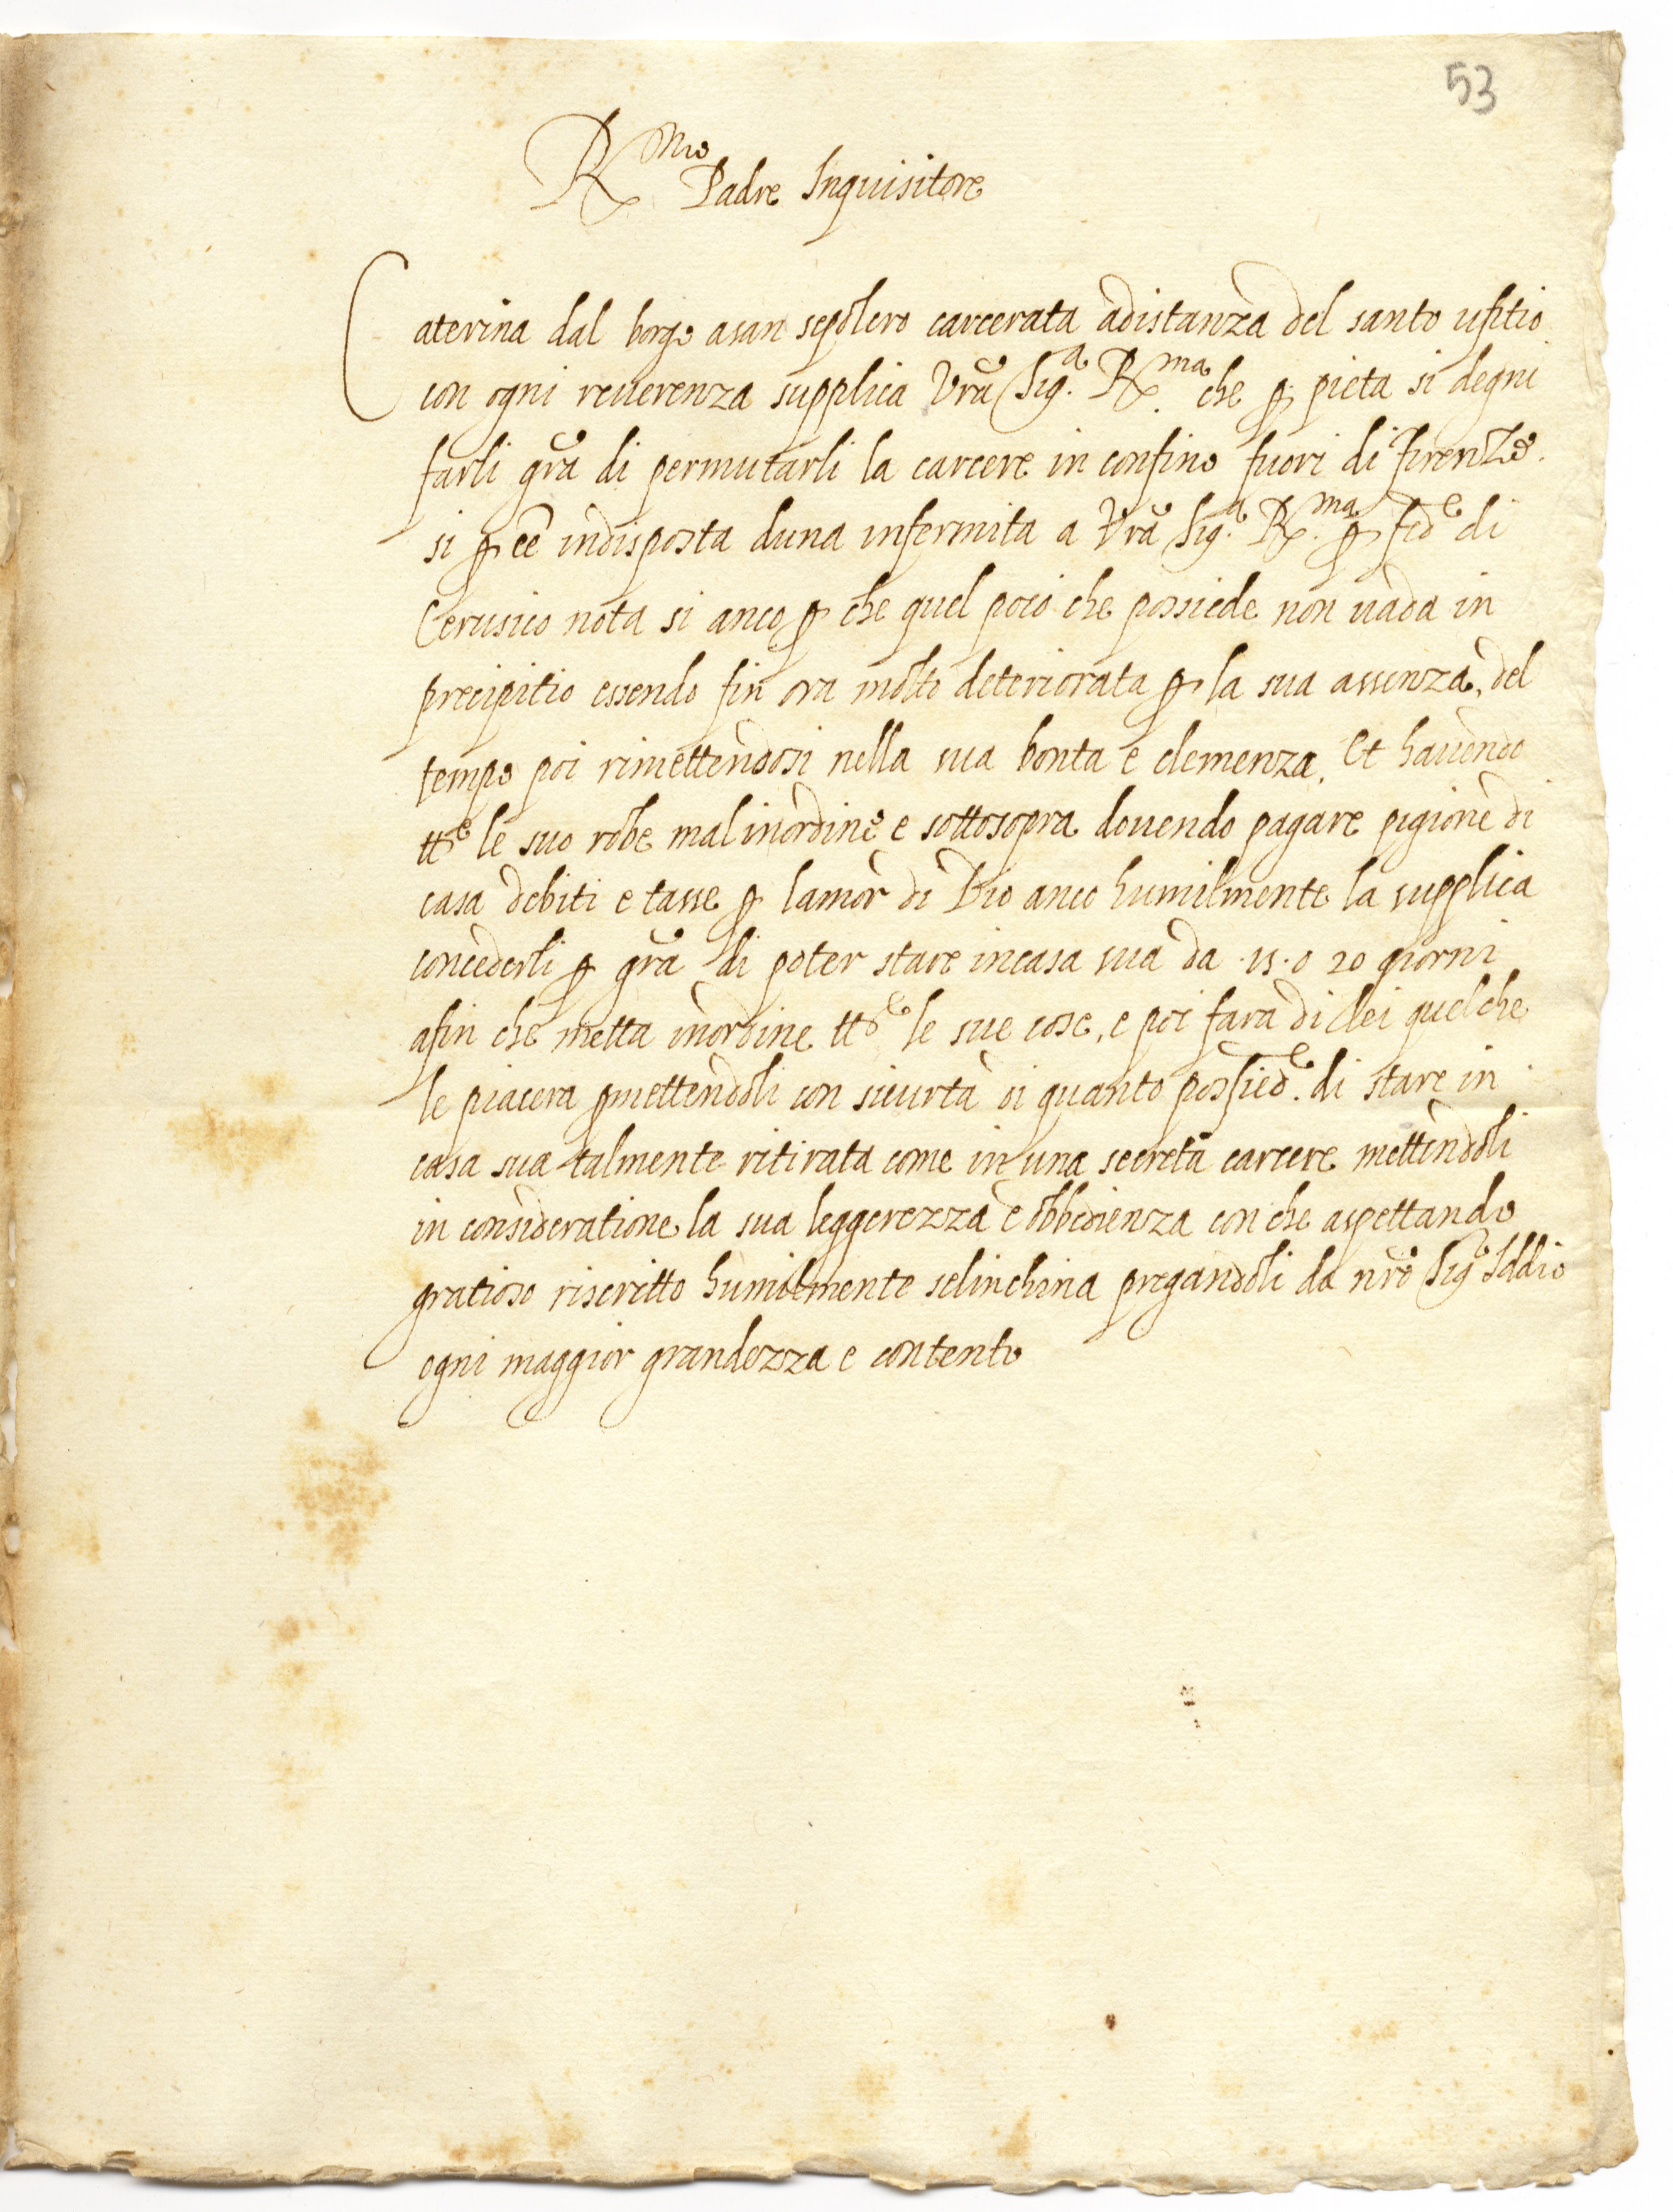 53
R.mo Padre Inquisitore
Caterina dal borgo asan sepolcro carcerata adistanza del santo ufitio
con ogni reuerenza supplica Vra Sig.a R.ma che p pieta si degni
farli gra di permutarli la carcere in confino fuori di Firenze.
si p eē indisposta duna infermita a Vra Sig.a R.ma p fede di
Cerusico nota si anco p che quel poco che possiede non uada in
precipitio essendo fin ora molto deteriorata p la sua assenza, del
tempo poi rimettendosi nella sua bonta e clemenza. Et hauendo
tte le suo robe mal inordine e sottosopra douendo pagare pigione di
casa debiti e tasse p lamor di Dio anco humilmente la supplica
concederli p gra di poter stare incasa sua da .15. o 20 giorni
afin che metta inordine tte le sue cose, e poi fara di lei quelche
le piacera pmettendoli con sicurta di quanto possiede. di stare in
casa sua talmente ritirata come in una secreta carcere mettendoli
in consideratione la sua leggerezza e obbedienza con che aspettando
gratioso riscritto humilmente selinchina pregandoli da nro Sig Iddio
ogni maggior grandezza e contento